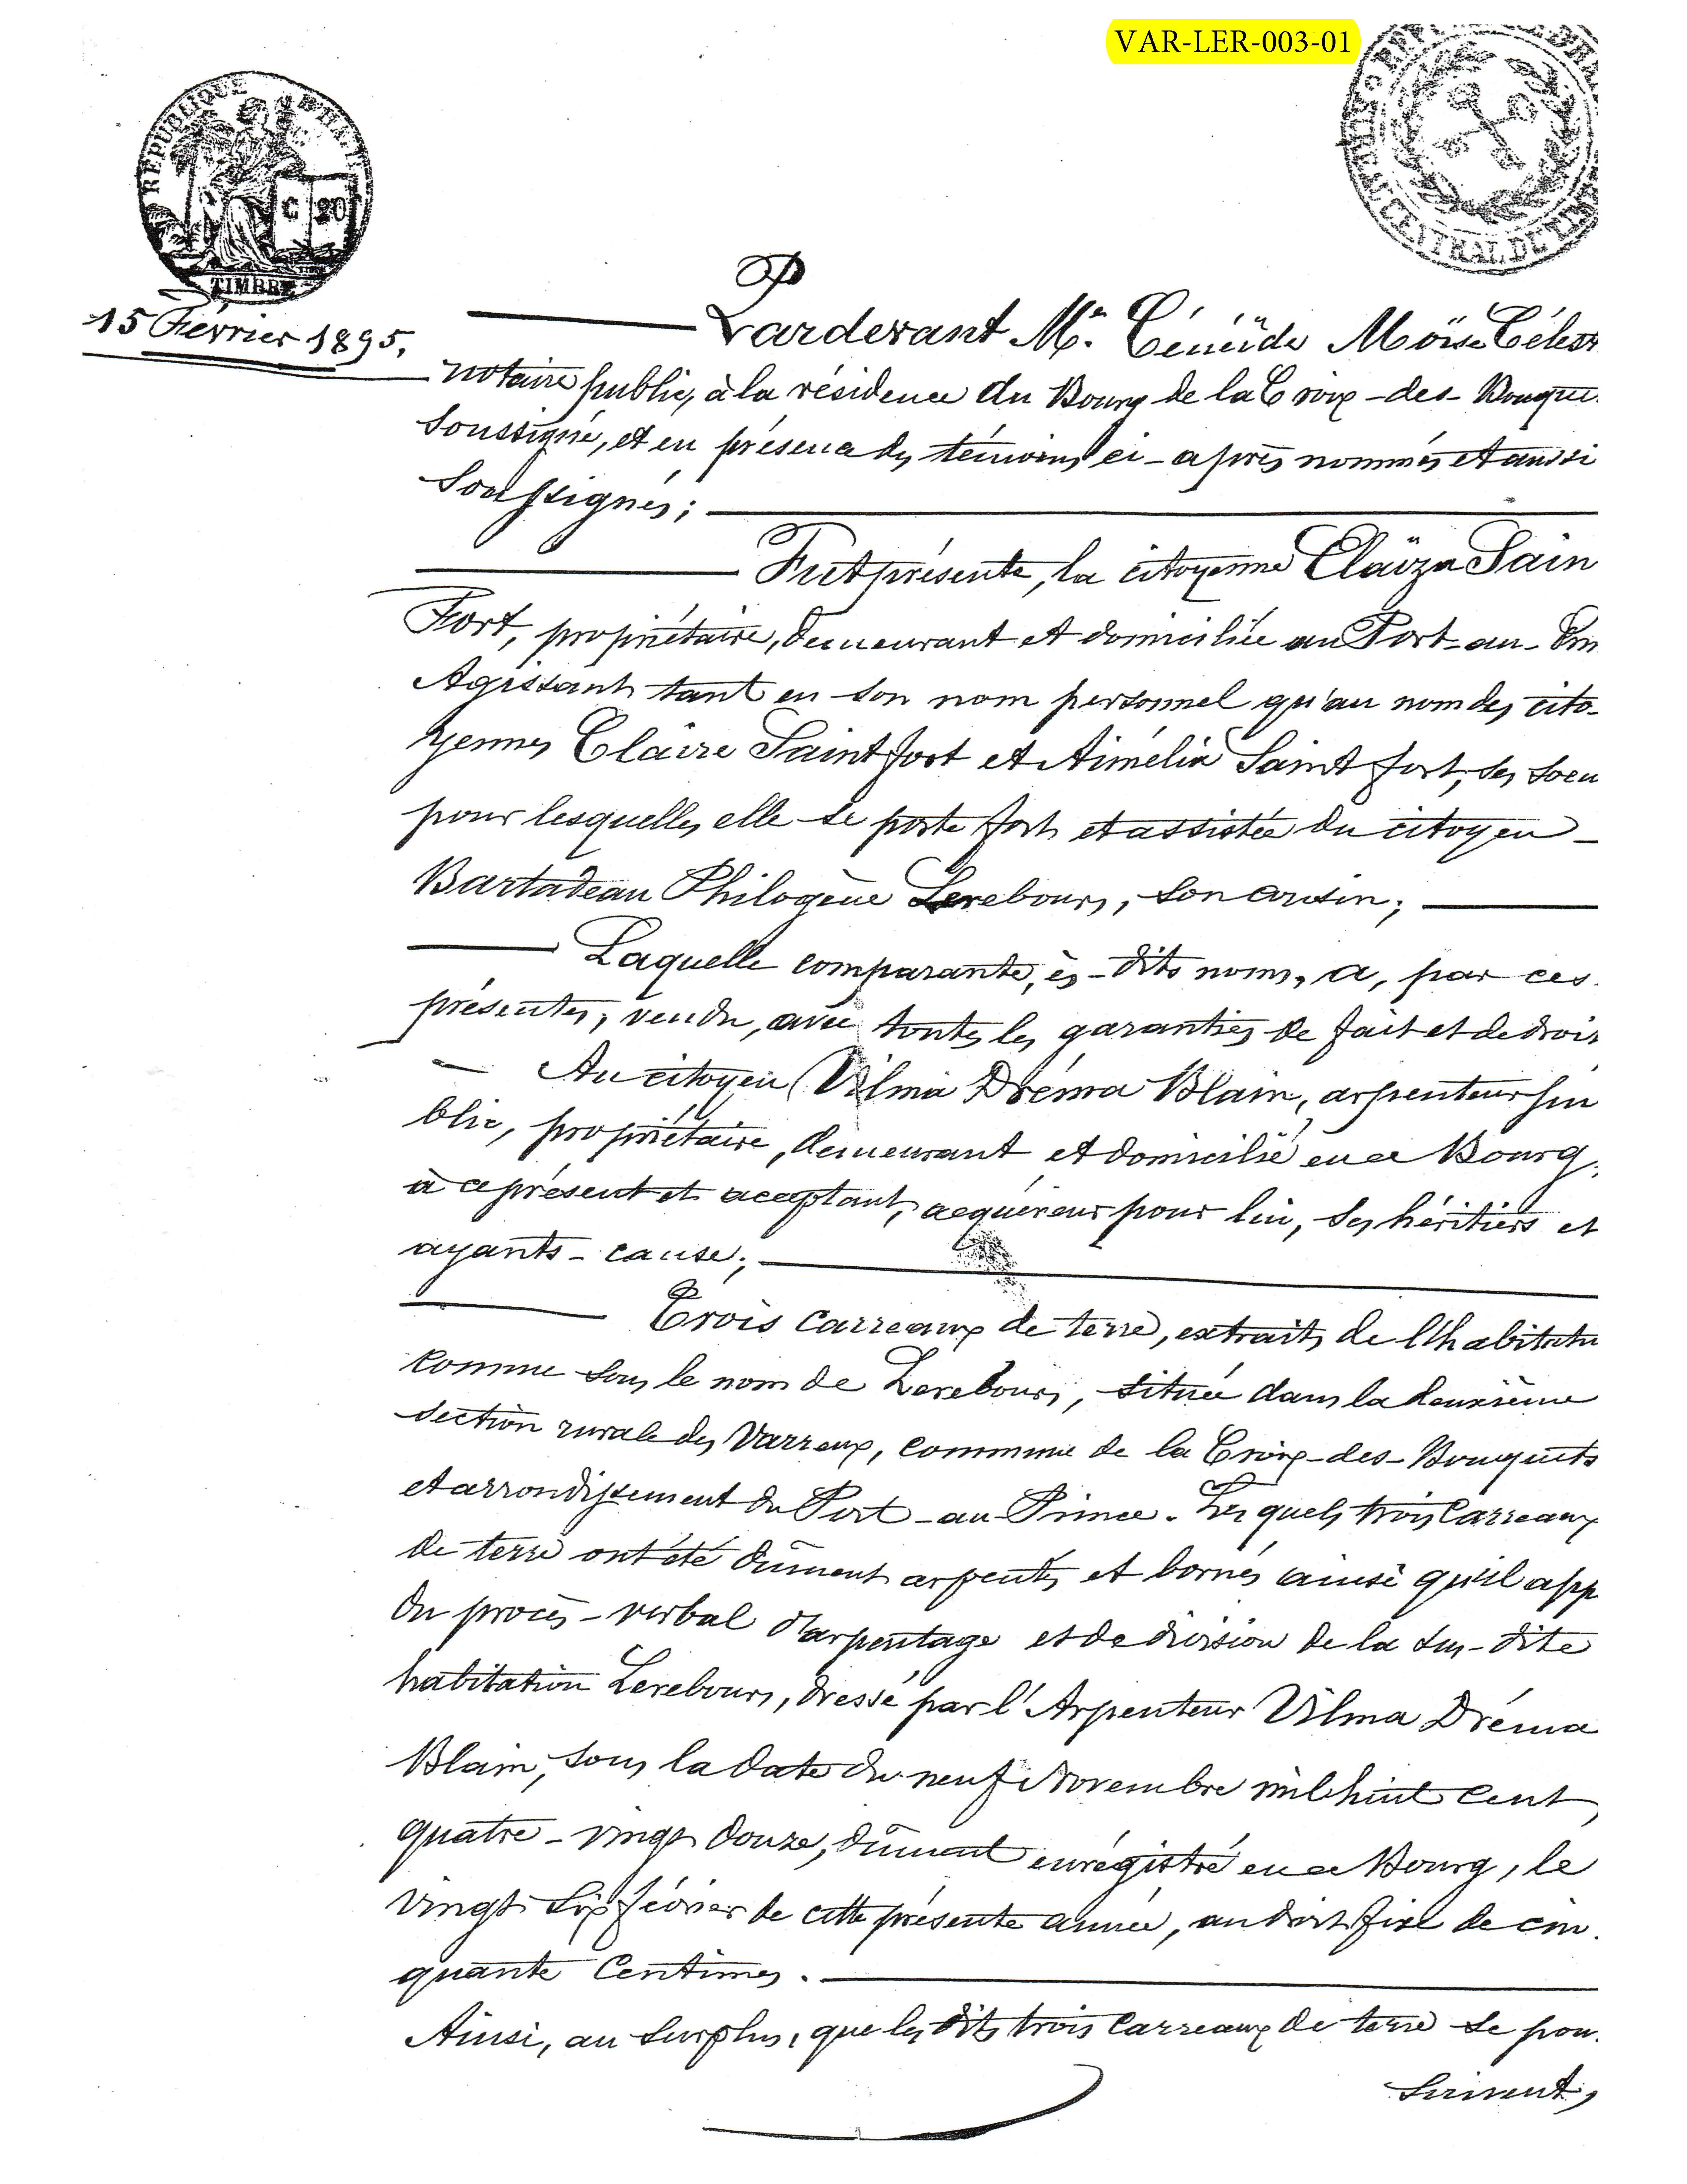 VAR-LER-003-01
REPUBLIQUE D'HAITI
C 20
TIMBRE
15 Février 1895.
Pardevant Me. Cénéïde Moïse Célest
notaire public, à la résidence du Bourg de la Croix-des-Bouque
soussigné, et en présence des témoins ci-après nommés et aussi
soussignés;
Fut présente, la citoyenne Claïza Sain
Fort, propriétaire, demeurant et domiciliée au Port-au-Prin
Agissant tant en son nom personnel qu'au nom des cito-
yennes Claire Saintfort et Aimélia Saintfort, ses soeu
pour lesquelles elle se porte fort et assistée du citoyen
Bartadeau Philogène Lerebours, son cousin;
Laquelle comparante, ès-dits noms, a, par ces
présentes, vendu, avec toutes les garanties de fait et de droit
Au citoyen Vilma Dréma Blain, arpenteur pu
blic, propriétaire, demeurant et domicilié en ce Bourg,
à ce présent et acceptant, acquéreur pour lui, ses héritiers et
ayants-cause;
Trois carreaux de terre, extraits de l'habitatn
connue sous le nom de Lerebours, située dans la deuxième
section rurale des Varreux, commune de la Croix-des-Bouquets
et arrondissement du Port-au-Prince. Lesquels trois carreaux
de terre ont été dûment arpentés et bornés ainsi qu'il app
du procès-verbal d'arpentage et de division de la sus-dite
habitation Lerebours, dressé par l'Arpenteur Vilma Dréma
Blain, sous la date du neuf Novembre mil huit cent
quatre-vingt douze, dûment enrégistré en ce Bourg, le
vingt six février de cette présente année, au droit fixe de cin
quante centimes.
Ainsi, au surplus, que les dits trois carreaux de terre se pour
suivent,